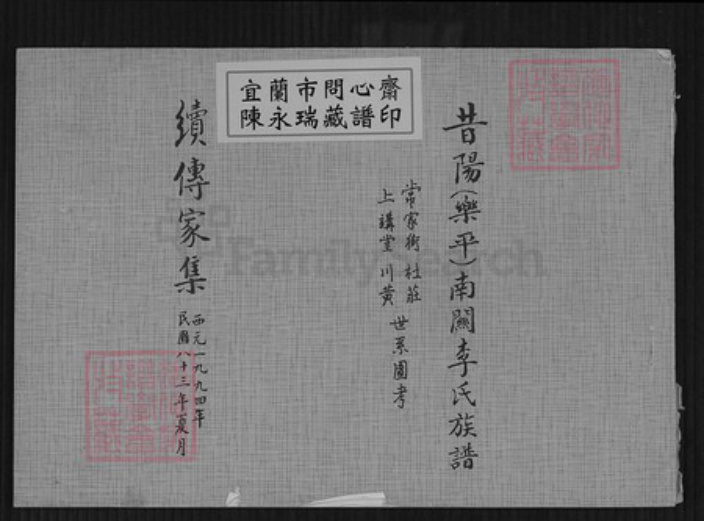 宜蘭市問心齋
陳永瑞藏譜印
昔陽(樂平)南關李氏族譜
常家街 杜莊
上講堂 川黃
世系圖考
續傳家集
西元一九九四年
民國八十三年夏月
FamilySearch